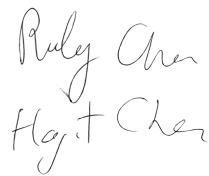 Ruly Chen
Hagit Chen